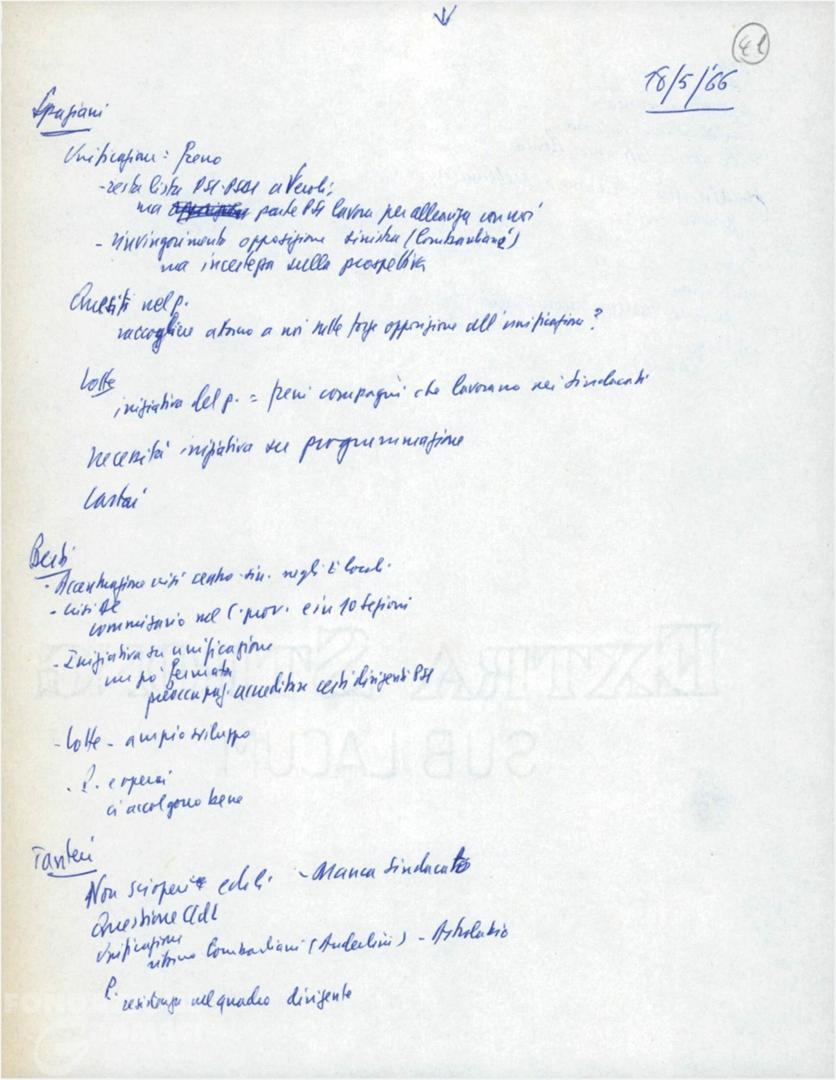 41
18/5/'66
Spaziani
Unificazione: freno
- resta lista PSI-PSDI a Veroli;
ma parte PSI lavora per alleanza con noi
- rinvigorimento opposizione sinistra (lombardiana)
ma incertezza sulla prospettiva
Quesiti nel p.
raccogliere attorno a noi nelle forze opposizione all'unificazione?
Lotte
iniziativa del p. = freni compagni che lavorano nei sindacati
necessità iniziativa su programmazione
Berti
- Accentuazione crisi centro-sin. negli E locali.
- crisi
commissario nel C. prov. e in 10 sezioni
- Iniziativa su unificazione
un po' fermata
preoccupaz. accreditare certi dirigenti PSI
- Lotte - ampio sviluppo
- P. e operai
ci accolgono bene
Non scioperi edili. - Manca sindacato
Questione CdL
Unificazione
ritorno Lombardiani (Anderlini) - Astrolabio
P.
resistenza nel quadro dirigente
EXTRA STRONG
SUBLACUM